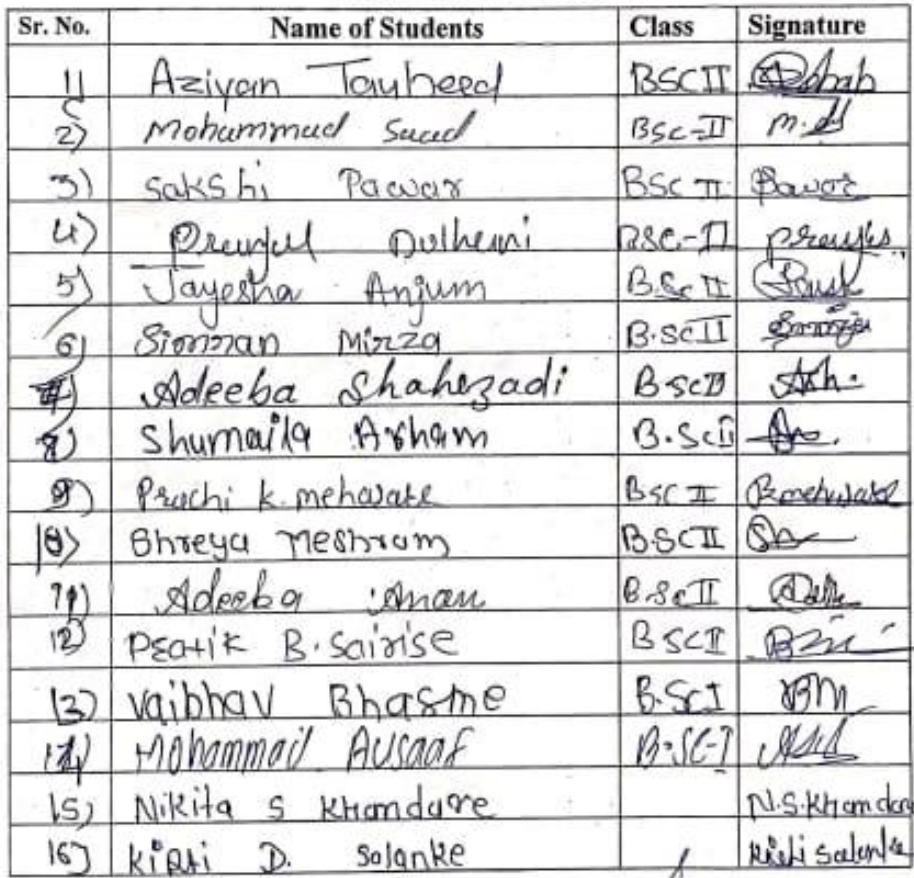 Sr. No. Name of Students Class Signature
1) Aziyan Tauheed BSC II
2) Mohammad Saad BSC-II
3) Sakshi Pawar BSC II Pawar
4) Dulhani BSC-II
5) Jayesha Anjum B.Sc II
6) Simran Mirza B.SC II
7) Adeeba Shahezadi B SC II Ash.
8) Shumaila Arham B.Sc II
9) Prachi k. mehavate BSC II
10) Shreya Meshram B.SC II
11) Adeeba Aman B.Sc II
12) Pratik B. Sairise B SC II
13) Vaibhav Bhasme B.SC I BM
14) Mohammad Ausaaf B.SC-I
15) Nikita S Khandare N.S.Khandare
16) Kirti D. Solanke Kirti Solanke